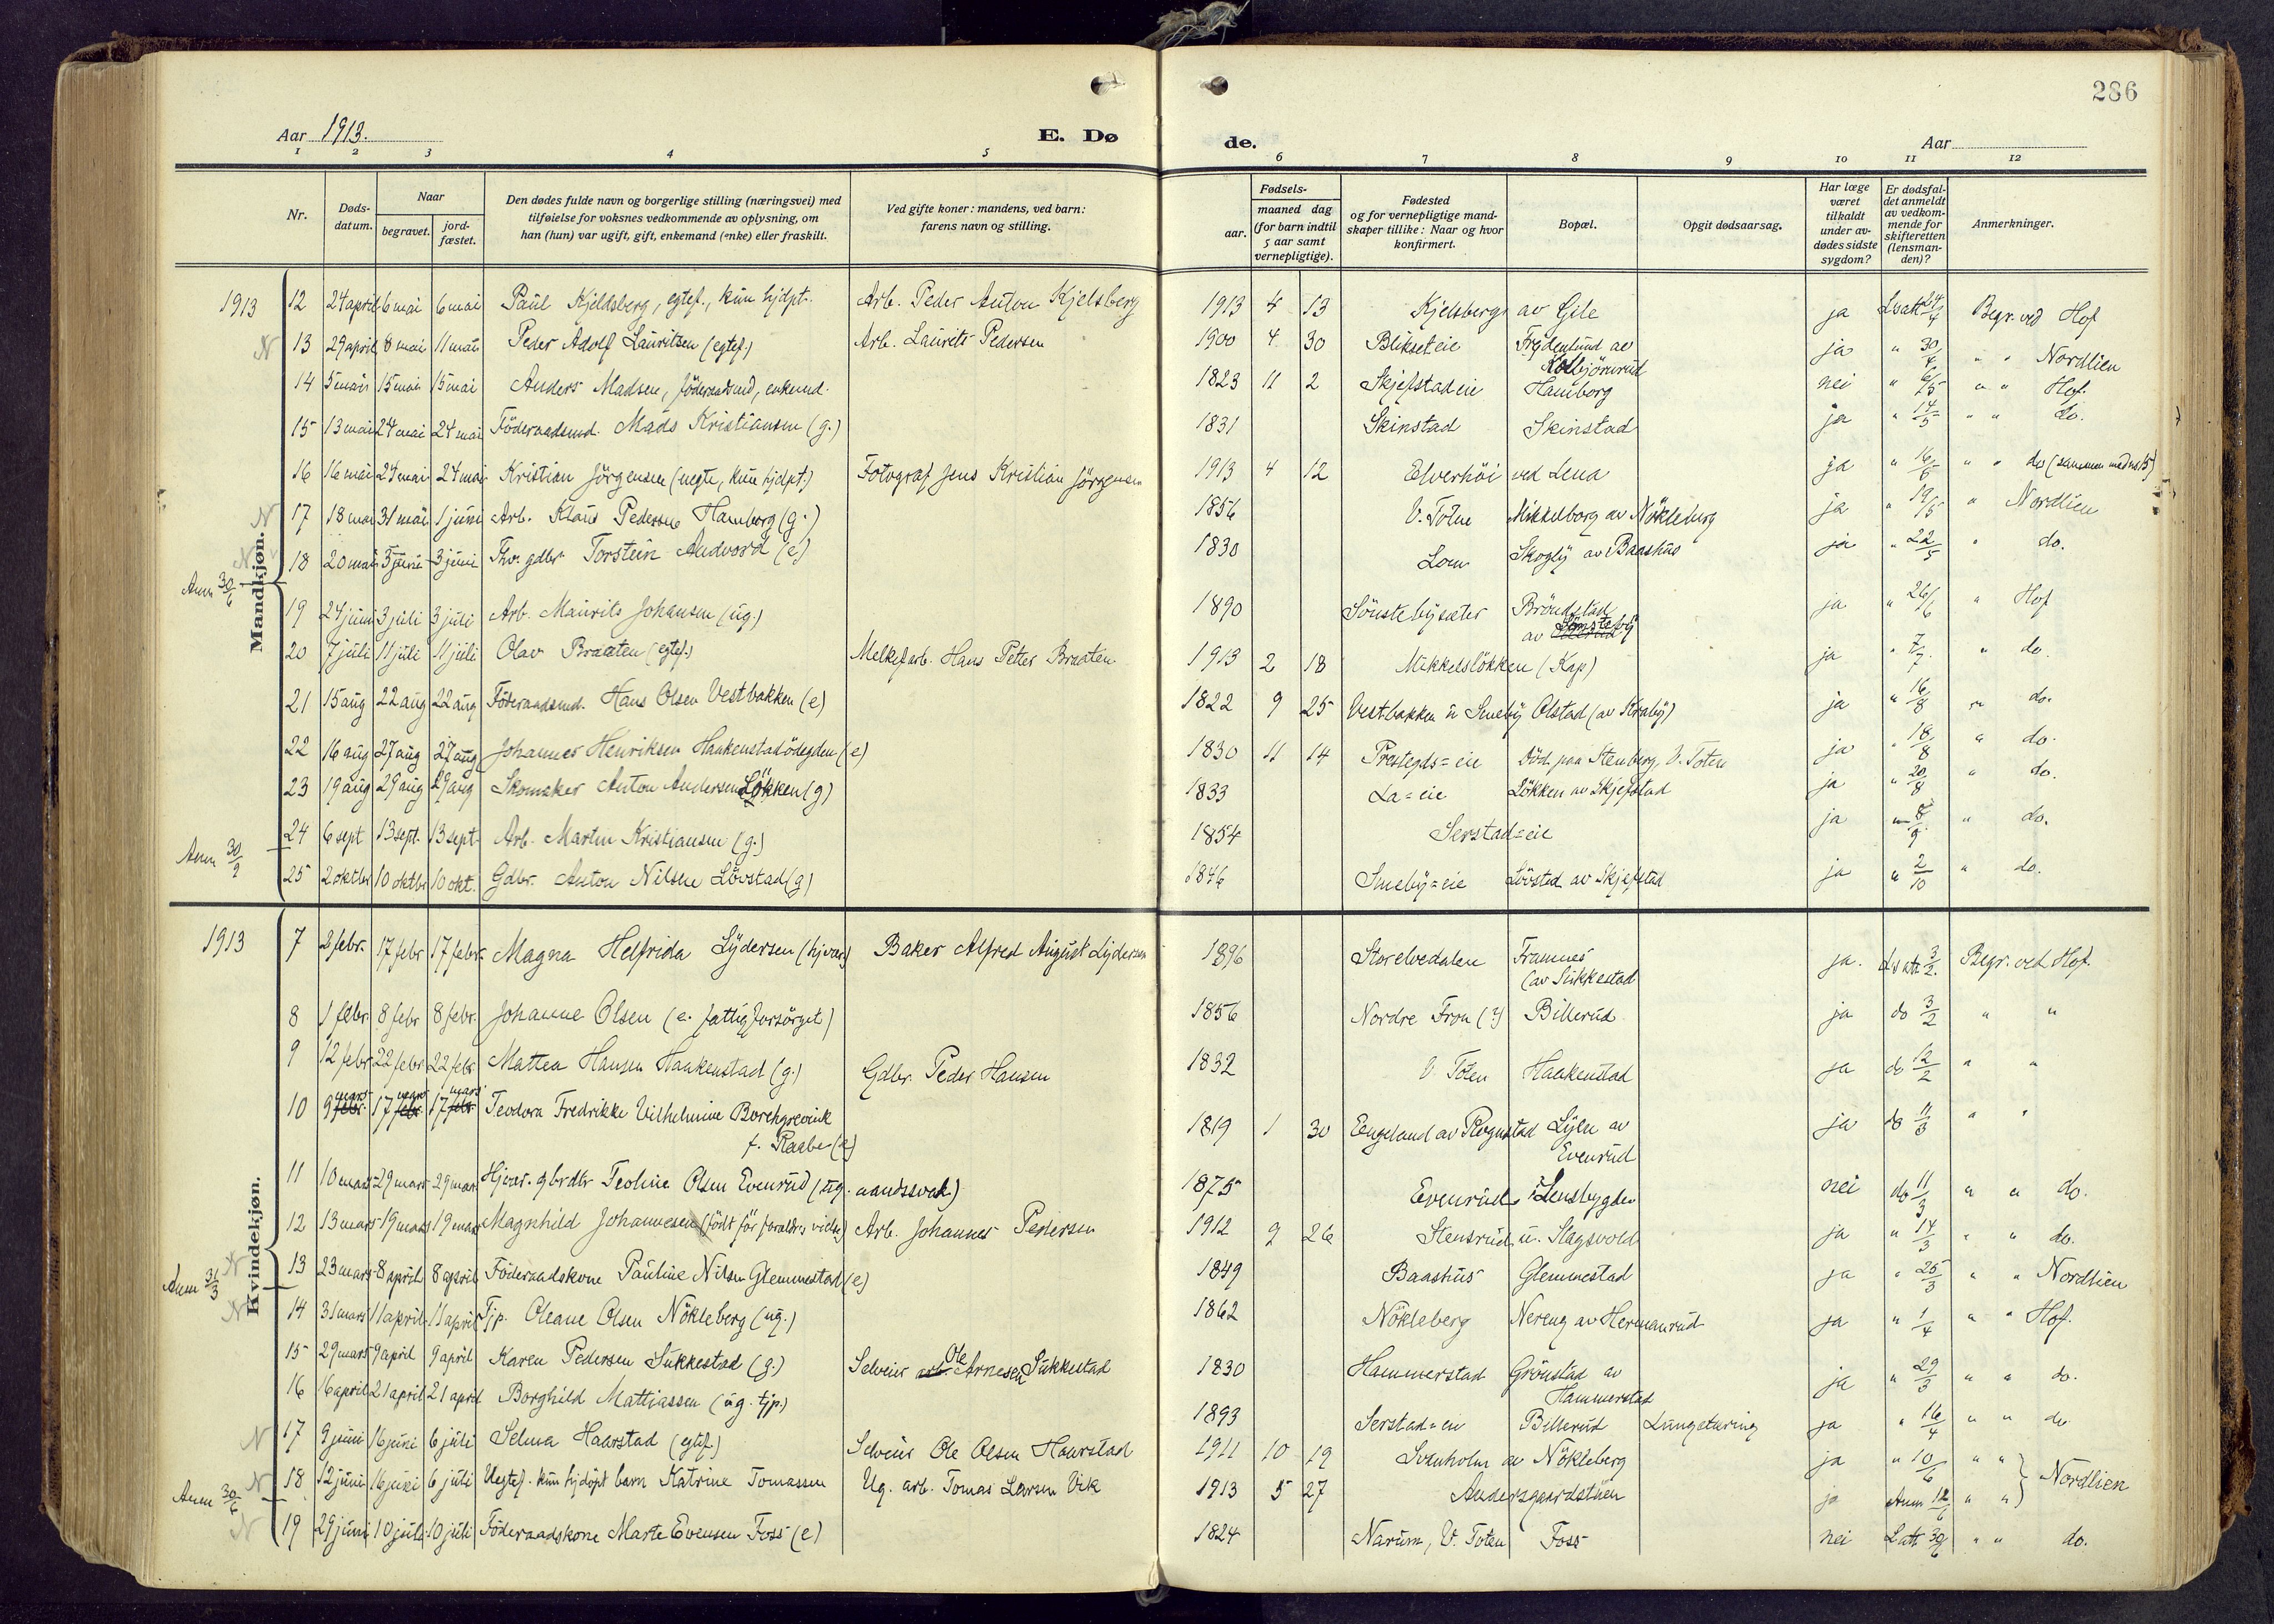 286
Aar 1913. E. Dø de. Aar
1 2 3 4 5 6 7 8 9 10 11 12
Nr. Døds-datum. Naar begravet. jord-fæstet. Den dødes fulde navn og borgerlige stilling (næringsvei) med tilføielse for voksnes vedkommende av oplysning, om han (hun) var ugift, gift, enkemand (enke) eller fraskilt. Ved gifte koner: mandens, ved barn: farens navn og stilling. Fødsels- aar. maaned dag (for barn indtil 5 aar samt vernepligtige). Fødested og for vernepligtige mandskaper tillike: Naar og hvor konfirmert. Bopæl. Opgit dødsaarsag. Har læge været tilkaldt under avdødes sidste sygdom? Er dødsfaldet anmeldt av vedkommende for skifteretten (lensmanden)? Anmerkninger.
Mandkjøn.
1913 12 24 april 6 mai 6 mai Paul Kjeldsberg, egtef., kun hjdpt. Arb. Peder Anton Kjelsberg 1913 4 13 Kjelsberg av Gile ja Lsatt 24/4 Begr. ved Hof
N 13 29 april 8 mai 11 mai Peder Adolf Lauritsen (egtef.) Arb. Laurits Pedersen 1900 4 30 Blikset eie Frydenlund av Kolbjörnrud ja " 30/4 " " Nordlien
14 5 mai 15 mai 15 mai Anders Madsen, föderaadsmd, enkemd. 1823 11 2 Skjefstad eie Hamborg nei " 6/5 " " Hof.
15 13 mai 24 mai 24 mai Föderaadsmd. Mads Kristiansen (g.) 1831 Skinstad Skinstad ja " 14/5 " " do.
16 16 mai 24 mai 24 mai Kristian Jörgensen (uegte, kun hjdpt.) Fotograf Jens Kristian Jörgensen 1913 4 12 Elverhöi ved Lena ja " 16/5 " " do (sammen med nr 15)
N 17 18 mai 31 mai 1 juni Arb. Klaus Pedersen Hamborg (g.) 1856 V. Toten Mikkelborg av Nökleberg ja " 19/5 " Nordlien
N 18 20 mai 3 juni 3 juni Fhv. gdbr Torstein Andvord (e) 1830 Lom Skogly av Baashus ja " 22/5 " do.
Anm 30/6
19 24 juni 3 juli 3 juli Arb. Maurits Johansen (ug.) 1890 Sönstebysæter Bröndstad av Sönsteby ja " 26/6 " Hof
20 7 juli 11 juli 11 juli Olav Braaten (egtef.) Melkef.arb. Hans Petter Braaten 1913 2 18 Mikkelslökken (Kap) ja " 7/7 " do.
21 15 aug 22 aug 22 aug Föderaadsmd. Hans Olsen Vestbakken (e) 1822 9 25 Vestbakken u Smeby Olstad (av Kraby) ja " 16/8 " do.
22 16 aug 27 aug 27 aug Johannes Henriksen Haakenstadödegden (e) 1830 11 14 Prestegds=eie Död paa Stenberg, V. Toten ja " 18/8 " do.
23 19 aug 29 aug 29 aug Skomaker Anton Andersen Lökken (g) 1833 La=eie Lökken av Skjefstad ja " 20/8 " do.
24 6 sept 13 sept. 13 sept. Arb. Martin Kristiansen (g.) 1854 Serstad=eie ja " 8/9 " do.
Anm 30/9
25 2 oktbr 10 oktbr 10 okt. Gdbr. Anton Nilsen Lövstad (g) 1846 Smeby=eie Lövstad av Skjefstad ja " 2/10 " do.
Kvindekjøn.
1913 7 2 febr. 17 febr 17 febr. Magna Helfrida Lydersen (hjvær) Baker Alfred August Lydersen 1896 Storelvedalen Framnes (av Sukkestad ja. Ls att 3/2. Begr. ved Hof.
8 1 febr. 8 febr 8 febr. Johanne Olsen (e. fattigforsörget) 1856 Nordre Fron (?) Billerud ja do 3/2 " "
9 12 febr 22 febr 22 febr Mattea Hansen Haakenstad (g.) Gdbr. Peder Hansen 1832 V. Toten Haakenstad ja do 12/2 " "
10 9 febr. mars 17 febr mars 17 febr. mars Teodora Fredrikke Vilhelmine Borchgrevink f. Raabe (e) 1819 1 30 Eengeland av Rognstad Lyen av Evenrud ja do 11/3 " "
11 10 mars 29 mars 29 mars Hjvær. gbrdtr Teoline Olsen Evenrud (ug. aandssvak) 1875 Evenrud i Lensbygden nei do 11/3 " " do.
12 13 mars 19 mars 19 mars Magnhild Johannesen (födt för foraldres vielse) Arb. Johannes Pedersen 1912 9 26 Stensrud u. Slagsvold ja " 14/3 " " do.
N 13 23 mars 8 april 8 april Föderaadskone Pauline Nilsen Glemmestad (e) 1849 Baashus Glemmestad ja " 25/3 " " Nordlien
Anm 31/3
N 14 31 mars 11 april 11 april Tjp. Oleane Olsen Nökleberg (ug.) 1862 Nökleberg Nereng av Hermanrud ja " 1/4 " " Hof.
15 29 mars 9 april 9 april Karen Pedersen Sukkestad (g.) Selveier arb. Ole Arnesen Sukkestad 1830 Hammerstad Grönstad av Hammerstad ja " 29/3 " " do.
16 16 april 21 april 21 april Borghild Mattiassen (ug. tjp.) 1893 Serstad=eie Billerud Lungeturing ja " 16/4 " " do
N 17 9 juni 16 juni 6 juli Selma Haarstad (egtef.) Selveier Ole Olsen Haarstad 1911 10 19 Svenholm av Nökleberg ja " 10/6 " "
N 18 12 juni 16 juni 6 juli Uegtef. kun hjdöpt barn Katrine Tomassen Ug. arb. Tomas Larsen Vik 1913 5 27 Andersgaardstuen ja Anm 12/6 " " Nordlien
Anm 30/6
N 19 29 juni 10 juli 10 juli Föderaadskone Marte Evensen Foss (e) 1824 Narum, V. Toten Foss nei L att 30/6 " " do.